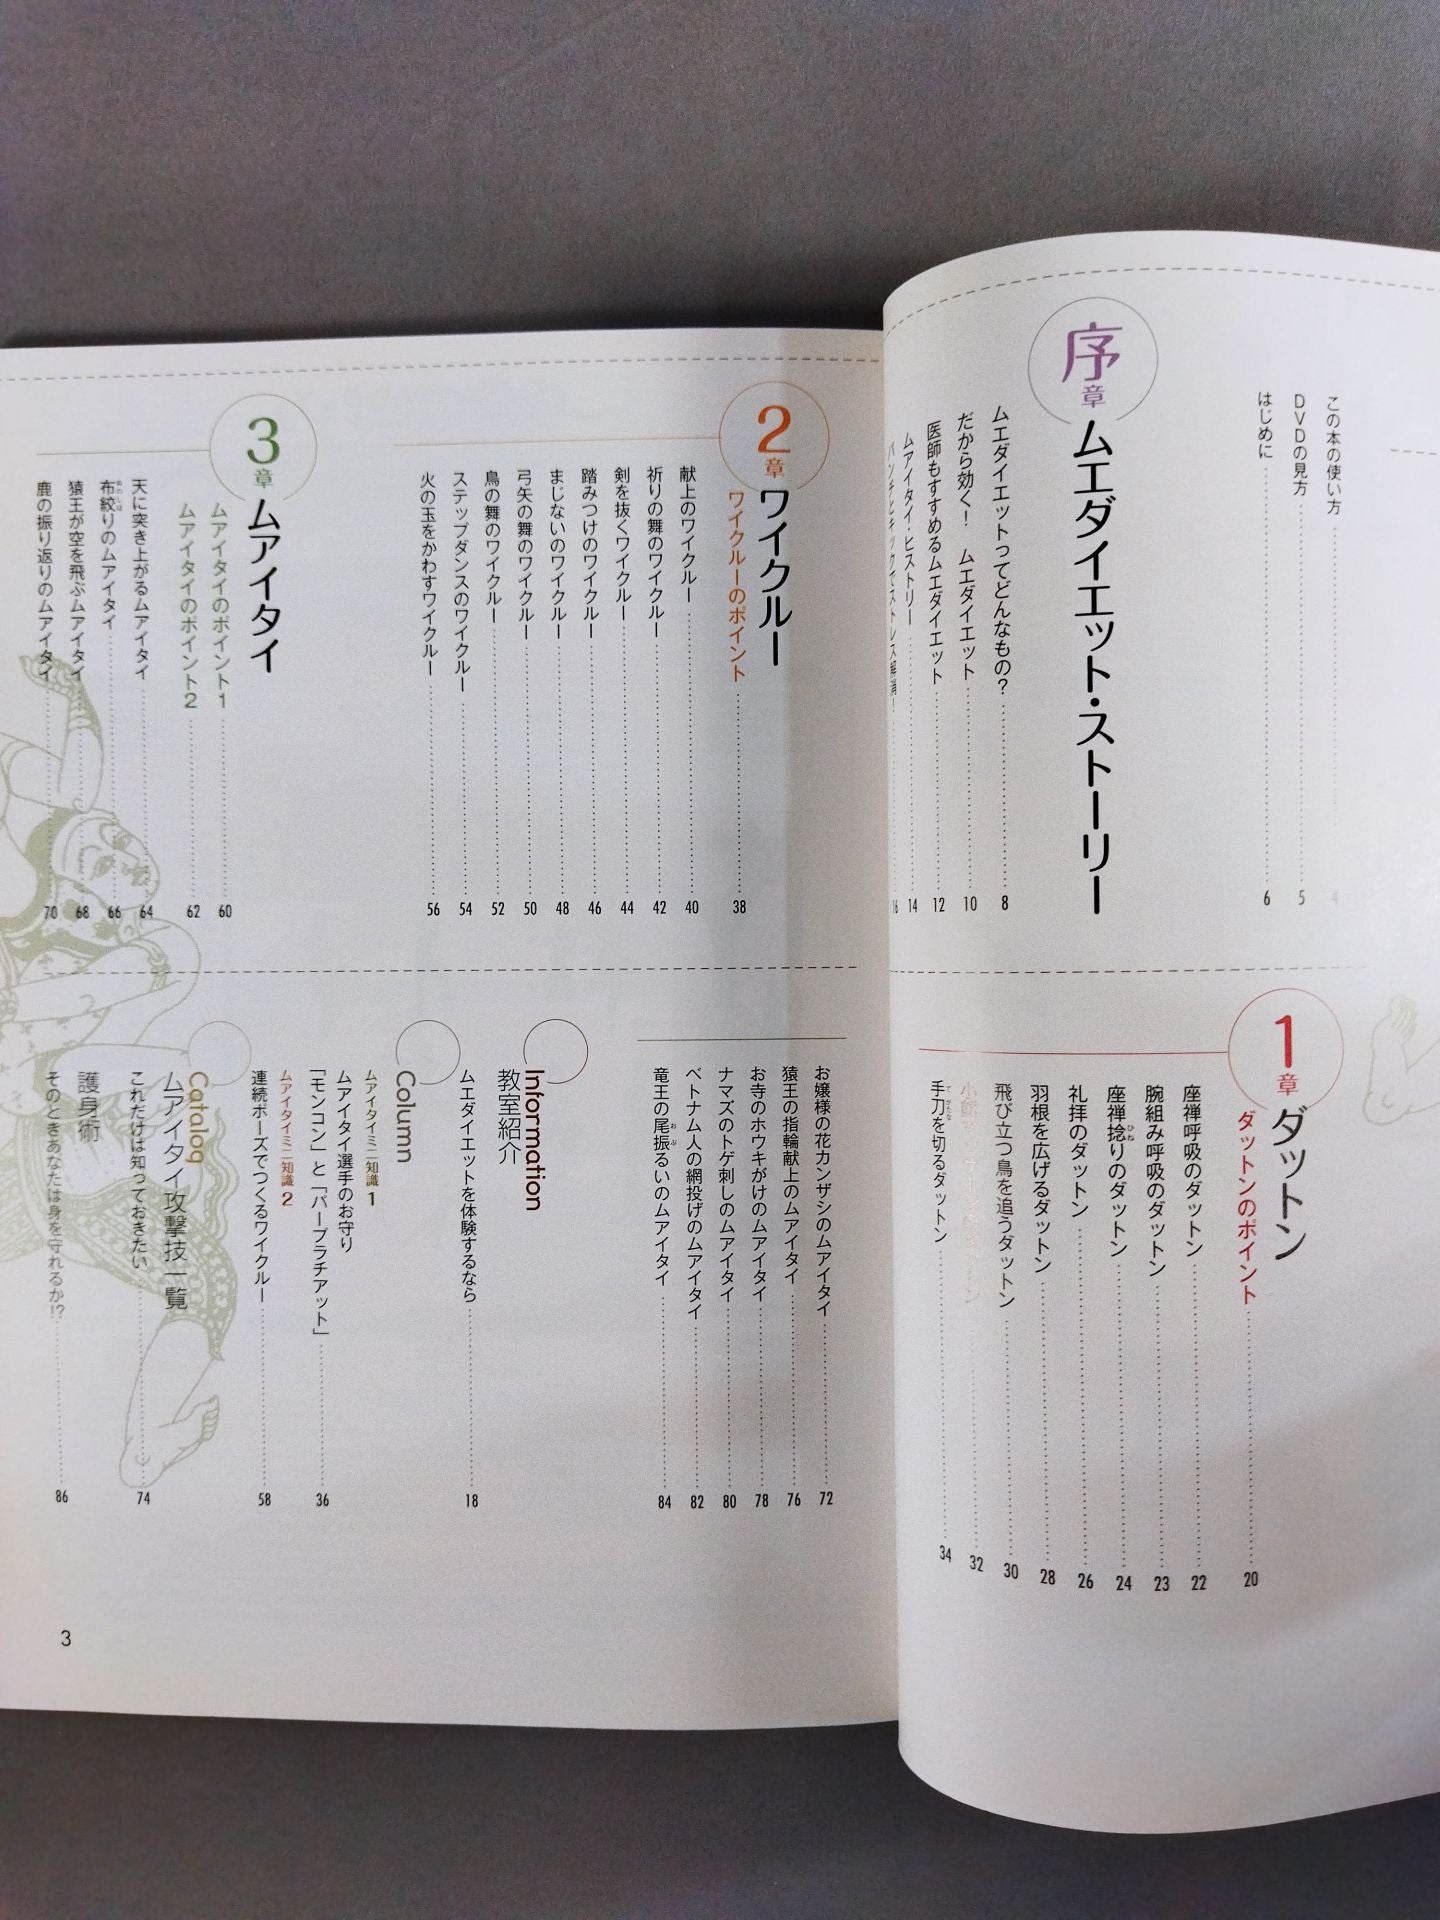 この本の使い方 4
DVDの見方 5
はじめに 6
序章 ムエダイエット・ストーリー
ムエダイエットってどんなもの? 8
だから効く! ムエダイエット 10
医師もすすめるムエダイエット 12
ムアイタイ・ヒストリー 14
パンチとキックでストレス解消! 16
1章 ダットン
ダットンのポイント 20
座禅呼吸のダットン 22
腕組み呼吸のダットン 23
座禅捻りのダットン 24
礼拝のダットン 26
羽根を広げるダットン 28
飛び立つ鳥を追うダットン 30
32
手刀を切るダットン 34
2章 ワイクルー
ワイクルーのポイント 38
献上のワイクルー 40
祈りの舞のワイクルー 42
剣を抜くワイクルー 44
踏みつけのワイクルー 46
まじないのワイクルー 48
弓矢の舞のワイクルー 50
鳥の舞のワイクルー 52
ステップダンスのワイクルー 54
火の玉をかわすワイクルー 56
3章 ムアイタイ
ムアイタイのポイント1 60
ムアイタイのポイント2 62
天に突き上がるムアイタイ 64
布絞りのムアイタイ 66
猿王が空を飛ぶムアイタイ 68
鹿の振り返りのムアイタイ 70
お嬢様の花カンザシのムアイタイ 72
猿王の指輪献上のムアイタイ 76
お寺のホウキがけのムアイタイ 78
ナマズのトゲ刺しのムアイタイ 80
ベトナム人の網投げのムアイタイ 82
竜王の尾振るいのムアイタイ 84
Information
教室紹介
ムエダイエットを体験するなら 18
Column
ムアイタイミニ知識1
ムアイタイ選手のお守り
「モンコン」と「パープラチアット」 36
ムアイタイミニ知識2
連続ポーズでつくるワイクルー 58
Catalog
ムアイタイ攻撃技一覧
これだけは知っておきたい 74
護身術
そのときあなたは身を守れるか!? 86
3